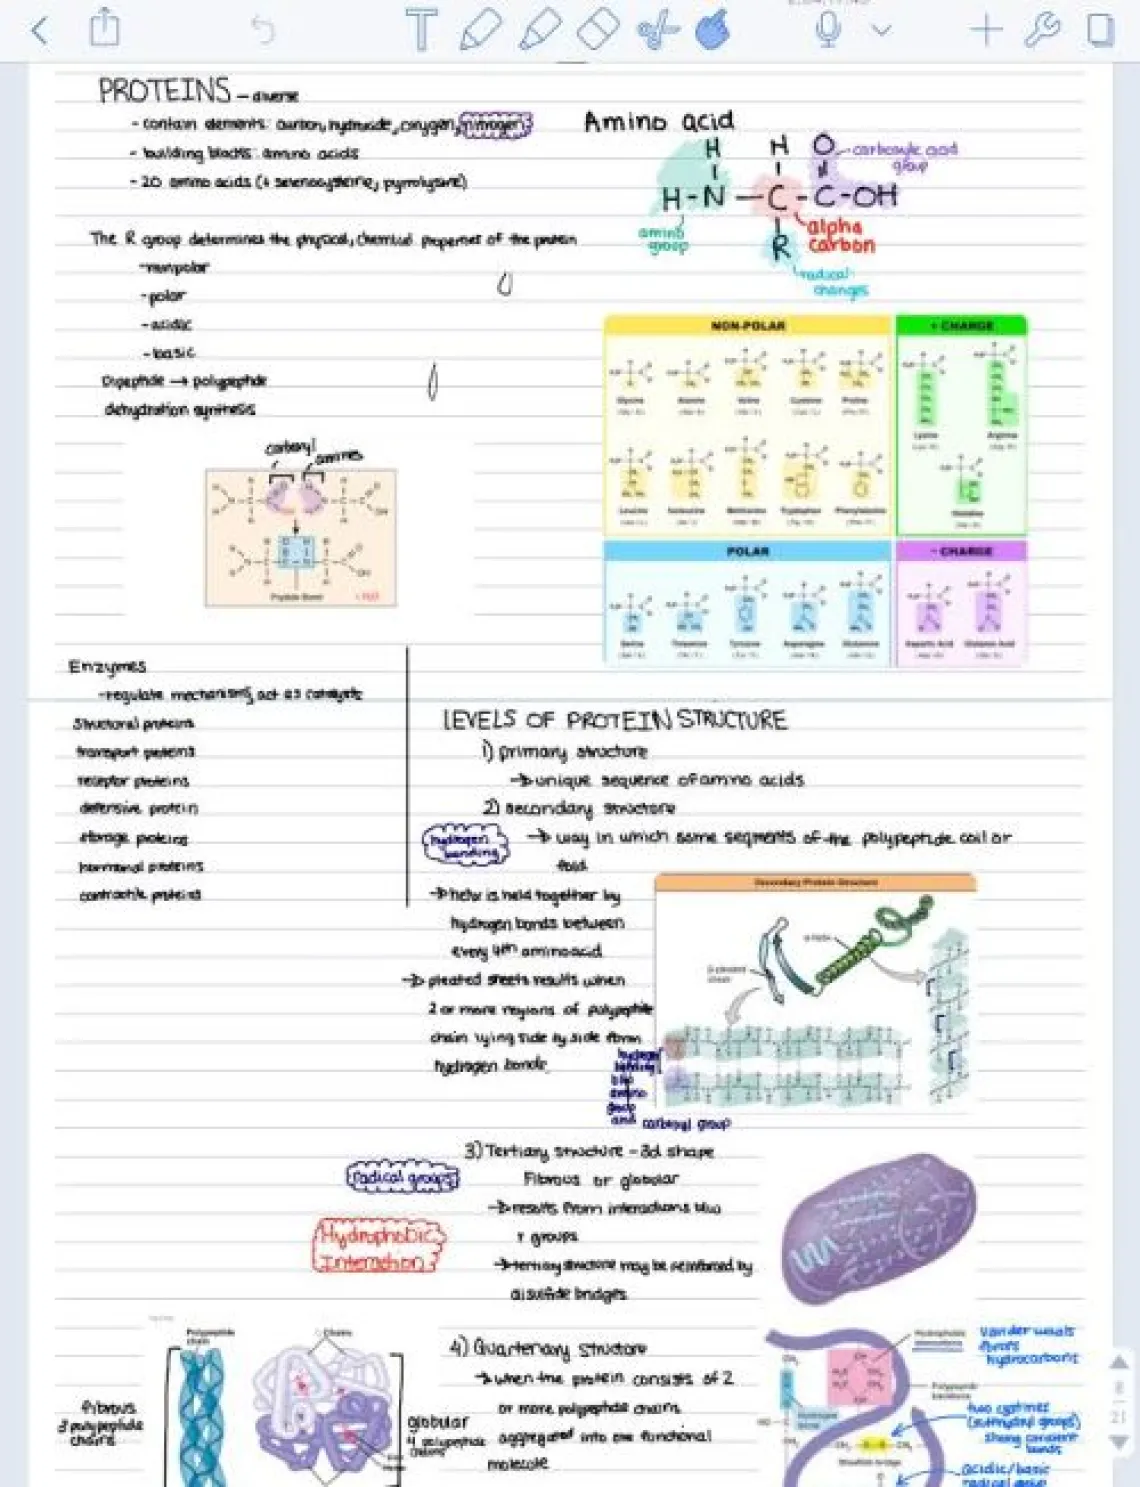 PROTEINS - diverse
- contain elements: carbon, hydroxide, oxygen, nitrogen
- building blocks: amino acids
- 20 amino acids (+ selenocysteine, pyrrolysine)
The R group determines the physical, chemical properties of the protein
- nonpolar
- polar
- acidic
- basic
Dipeptide → polypeptide
dehydration synthesis
carbonyl
amines
Peptide Bond
+ H2O
Amino acid
H H O
H-N-C-C-OH
R
carboxylic acid
group
amino
group
alpha
carbon
radical
changes
NON-POLAR
+ CHARGE
Glycine Alanine Valine Cysteine Proline
Lysine Arginine
Leucine Isoleucine Methionine Tryptophan Phenylalanine
Histidine
POLAR
- CHARGE
Serine Threonine Tyrosine Asparagine Glutamine
Aspartic Acid Glutamic Acid
Enzymes
- regulate mechanisms, act as catalysts
Structural proteins
transport proteins
receptor proteins
defensive protein
storage proteins
hormonal proteins
contractile proteins
LEVELS OF PROTEIN STRUCTURE
1) primary structure
→ unique sequence of amino acids
2) secondary structure
hydrogen
bonding
→ way in which some segments of the polypeptide coil or
fold
→ helix is held together by
hydrogen bonds between
every 4th amino acid
→ pleated sheets results when
2 or more regions of polypeptide
chain lying side by side form
hydrogen bonds
Secondary Protein Structure
α-helix
β-pleated
sheet
hydrogen
bonding
b/w
amino
group
and carbonyl group
3) Tertiary structure - 3d shape
radical groups
Fibrous or globular
→ results from interactions b/w
r groups
Hydrophobic
Interaction
→ tertiary structure may be reinforced by
disulfide bridges
4) Quarternary structure
→ when the protein consists of 2
or more polypeptide chains
aggregated into one functional
molecule
Polypeptide
chain
fibrous
3 polypeptide
chains
Chains
globular
4 polypeptide
chains
Hydrophobic
interactions
Van der waals
hydrocarbons
Polypeptide
backbone
Hydrogen
bond
Disulfide bridge
two cystines
(sulfhydryl groups)
strong covalent
bonds
acidic/basic
radical group
8
21